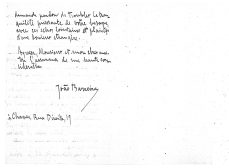 demande pardon de troubler le tran
quilité puissante de votre
avec ces échos lointains et plaintifs
d'un bonheur étrangé.
Agréez, Monsieur et mon cher
de ma haute con
sidération
João Barreira
à Chaves, Rua Direita, 19